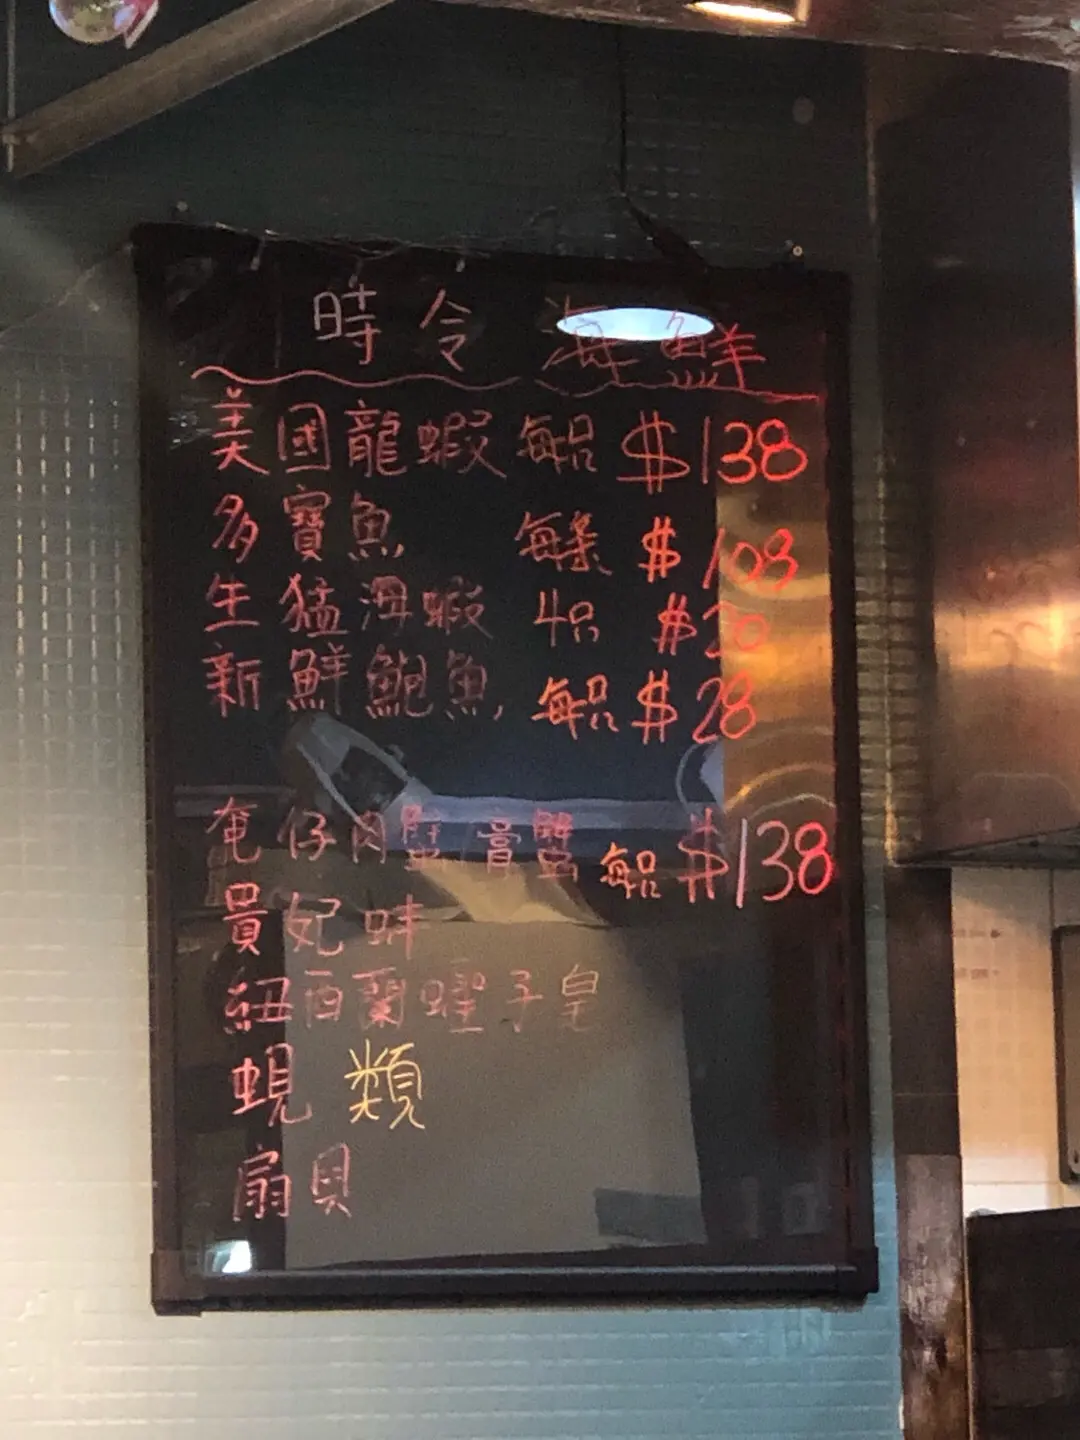 時令海鮮
美國龍蝦 每只 $138
多寶魚 每条 $108
生猛海蝦 4只 $20
新鮮鮑魚 每只 $28
奄仔肉蟹/膏蟹 每只 $138
貴妃蚌
紐西蘭蟶子皇
蜆類
扇貝